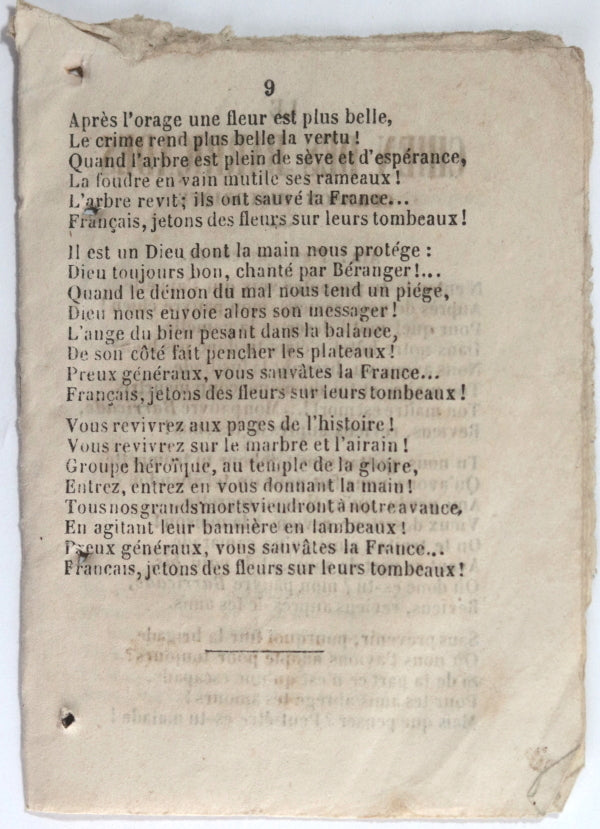 9
Après l'orage une fleur est plus belle,
Le crime rend plus belle la vertu !
Quand l'arbre est plein de sève et d'espérance,
La foudre en vain mutile ses rameaux !
L'arbre revit; ils ont sauvé la France...
Français, jetons des fleurs sur leurs tombeaux!
Il est un Dieu dont la main nous protége :
Dieu toujours bon, chanté par Béranger !...
Quand le démon du mal nous tend un piége,
Dieu nous envoie alors son messager !
L'ange du bien pesant dans la balance,
De son côté fait pencher les plateaux !
Preux généraux, vous sauvâtes la France...
Français, jetons des fleurs sur leurs tombeaux !
Vous revivrez aux pages de l'histoire !
Vous revivrez sur le marbre et l'airain !
Groupe héroïque, au temple de la gloire,
Entrez, entrez en vous donnant la main !
Tous nos grands morts viendront à notre avance,
En agitant leur bannière en lambeaux !
Preux généraux, vous sauvâtes la France...
Francais, jetons des fleurs sur leurs tombeaux !